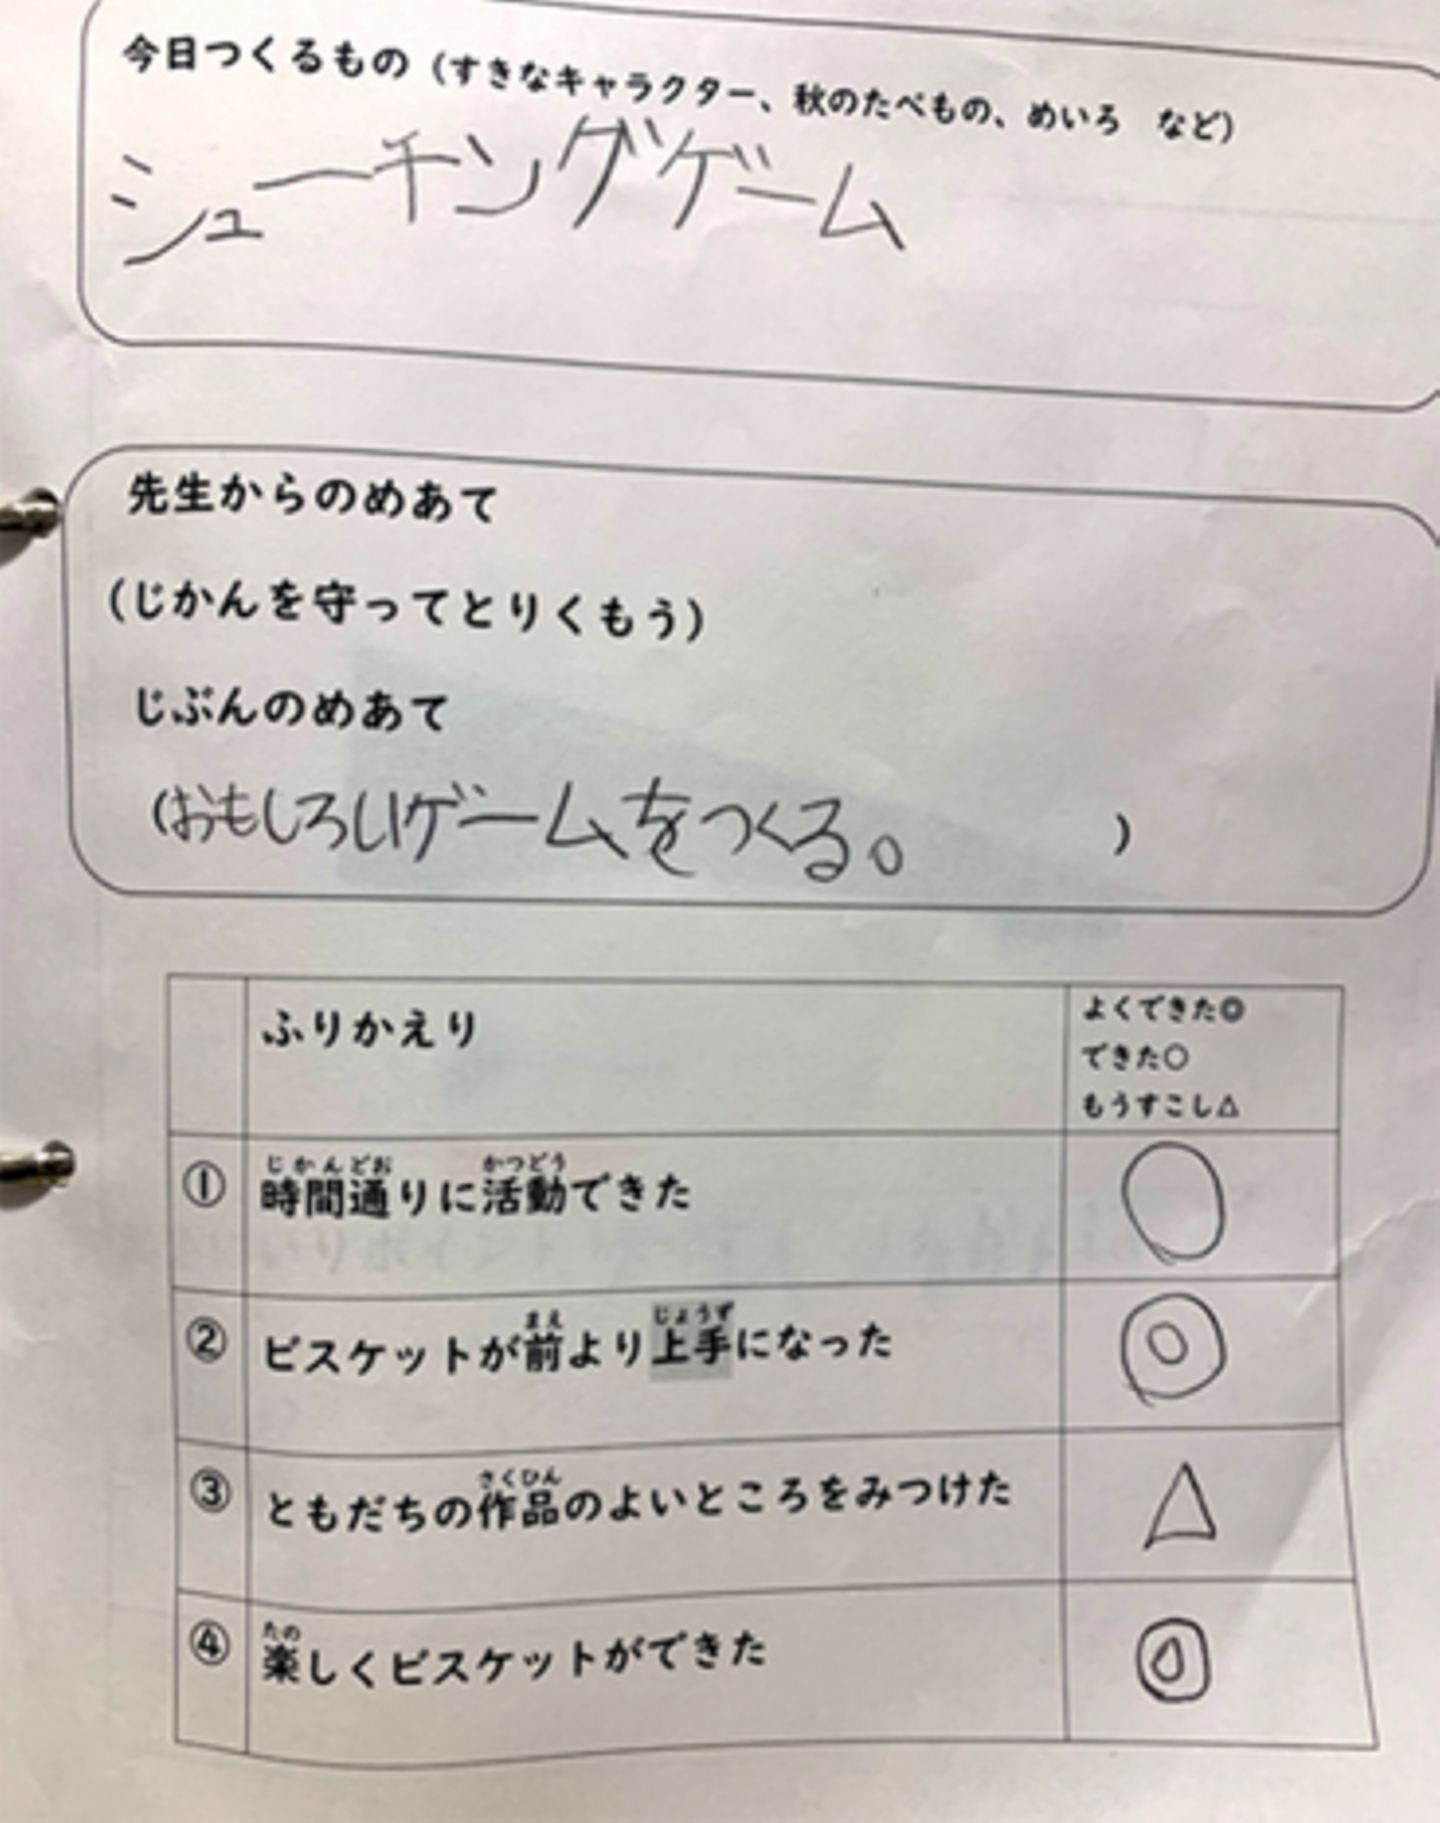 今日つくるもの（すきなキャラクター、秋のたべもの、めいろ　など）
シューチングゲーム
先生からのめあて
（じかんを守ってとりくもう）
じぶんのめあて
（おもしろいゲームをつくる。　）
ふりかえり
よくできた◎
できた○
もうすこし△
じかんどお　かつどう
① 時間通りに活動できた ○
まえ　じょうず
② ビスケットが前より上手になった ◎
さくひん
③ ともだちの作品のよいところをみつけた △
たの
④ 楽しくビスケットができた ◎